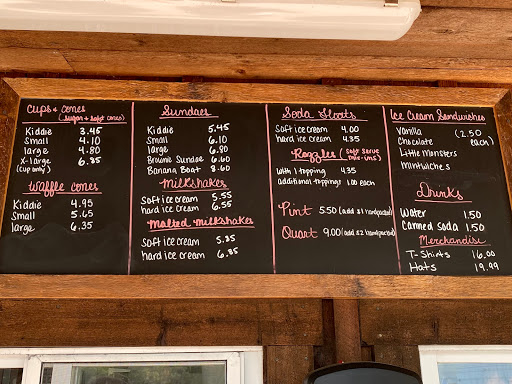 Cups & cones
(sugar + soft cones)
Kiddie 3.45
Small 4.10
large 4.80
X-large 6.85
(cup only)
Waffle cones
Kiddie 4.95
Small 5.65
large 6.35
Sundaes
Kiddie 5.45
Small 6.10
large 6.80
Brownie Sundae 6.60
Banana Boat 8.60
Milkshakes
Soft ice cream 5.55
hard ice cream 6.55
Malted Milkshakes
Soft ice cream 5.85
hard ice cream 6.85
Soda Floats
Soft ice cream 4.00
hard ice cream 4.35
Razzles (soft serve
mix-ins)
With 1 topping 4.35
additional toppings 1.00 each
Pint 5.50 (add $1 handpacked)
Quart 9.00 (add $2 handpacked)
Ice Cream Sandwiches
Vanilla (2.50
Chocolate each)
Little Monsters
Mintwiches
Drinks
Water 1.50
Canned soda 1.50
Merchandise
T-Shirts 16.00
Hats 19.99